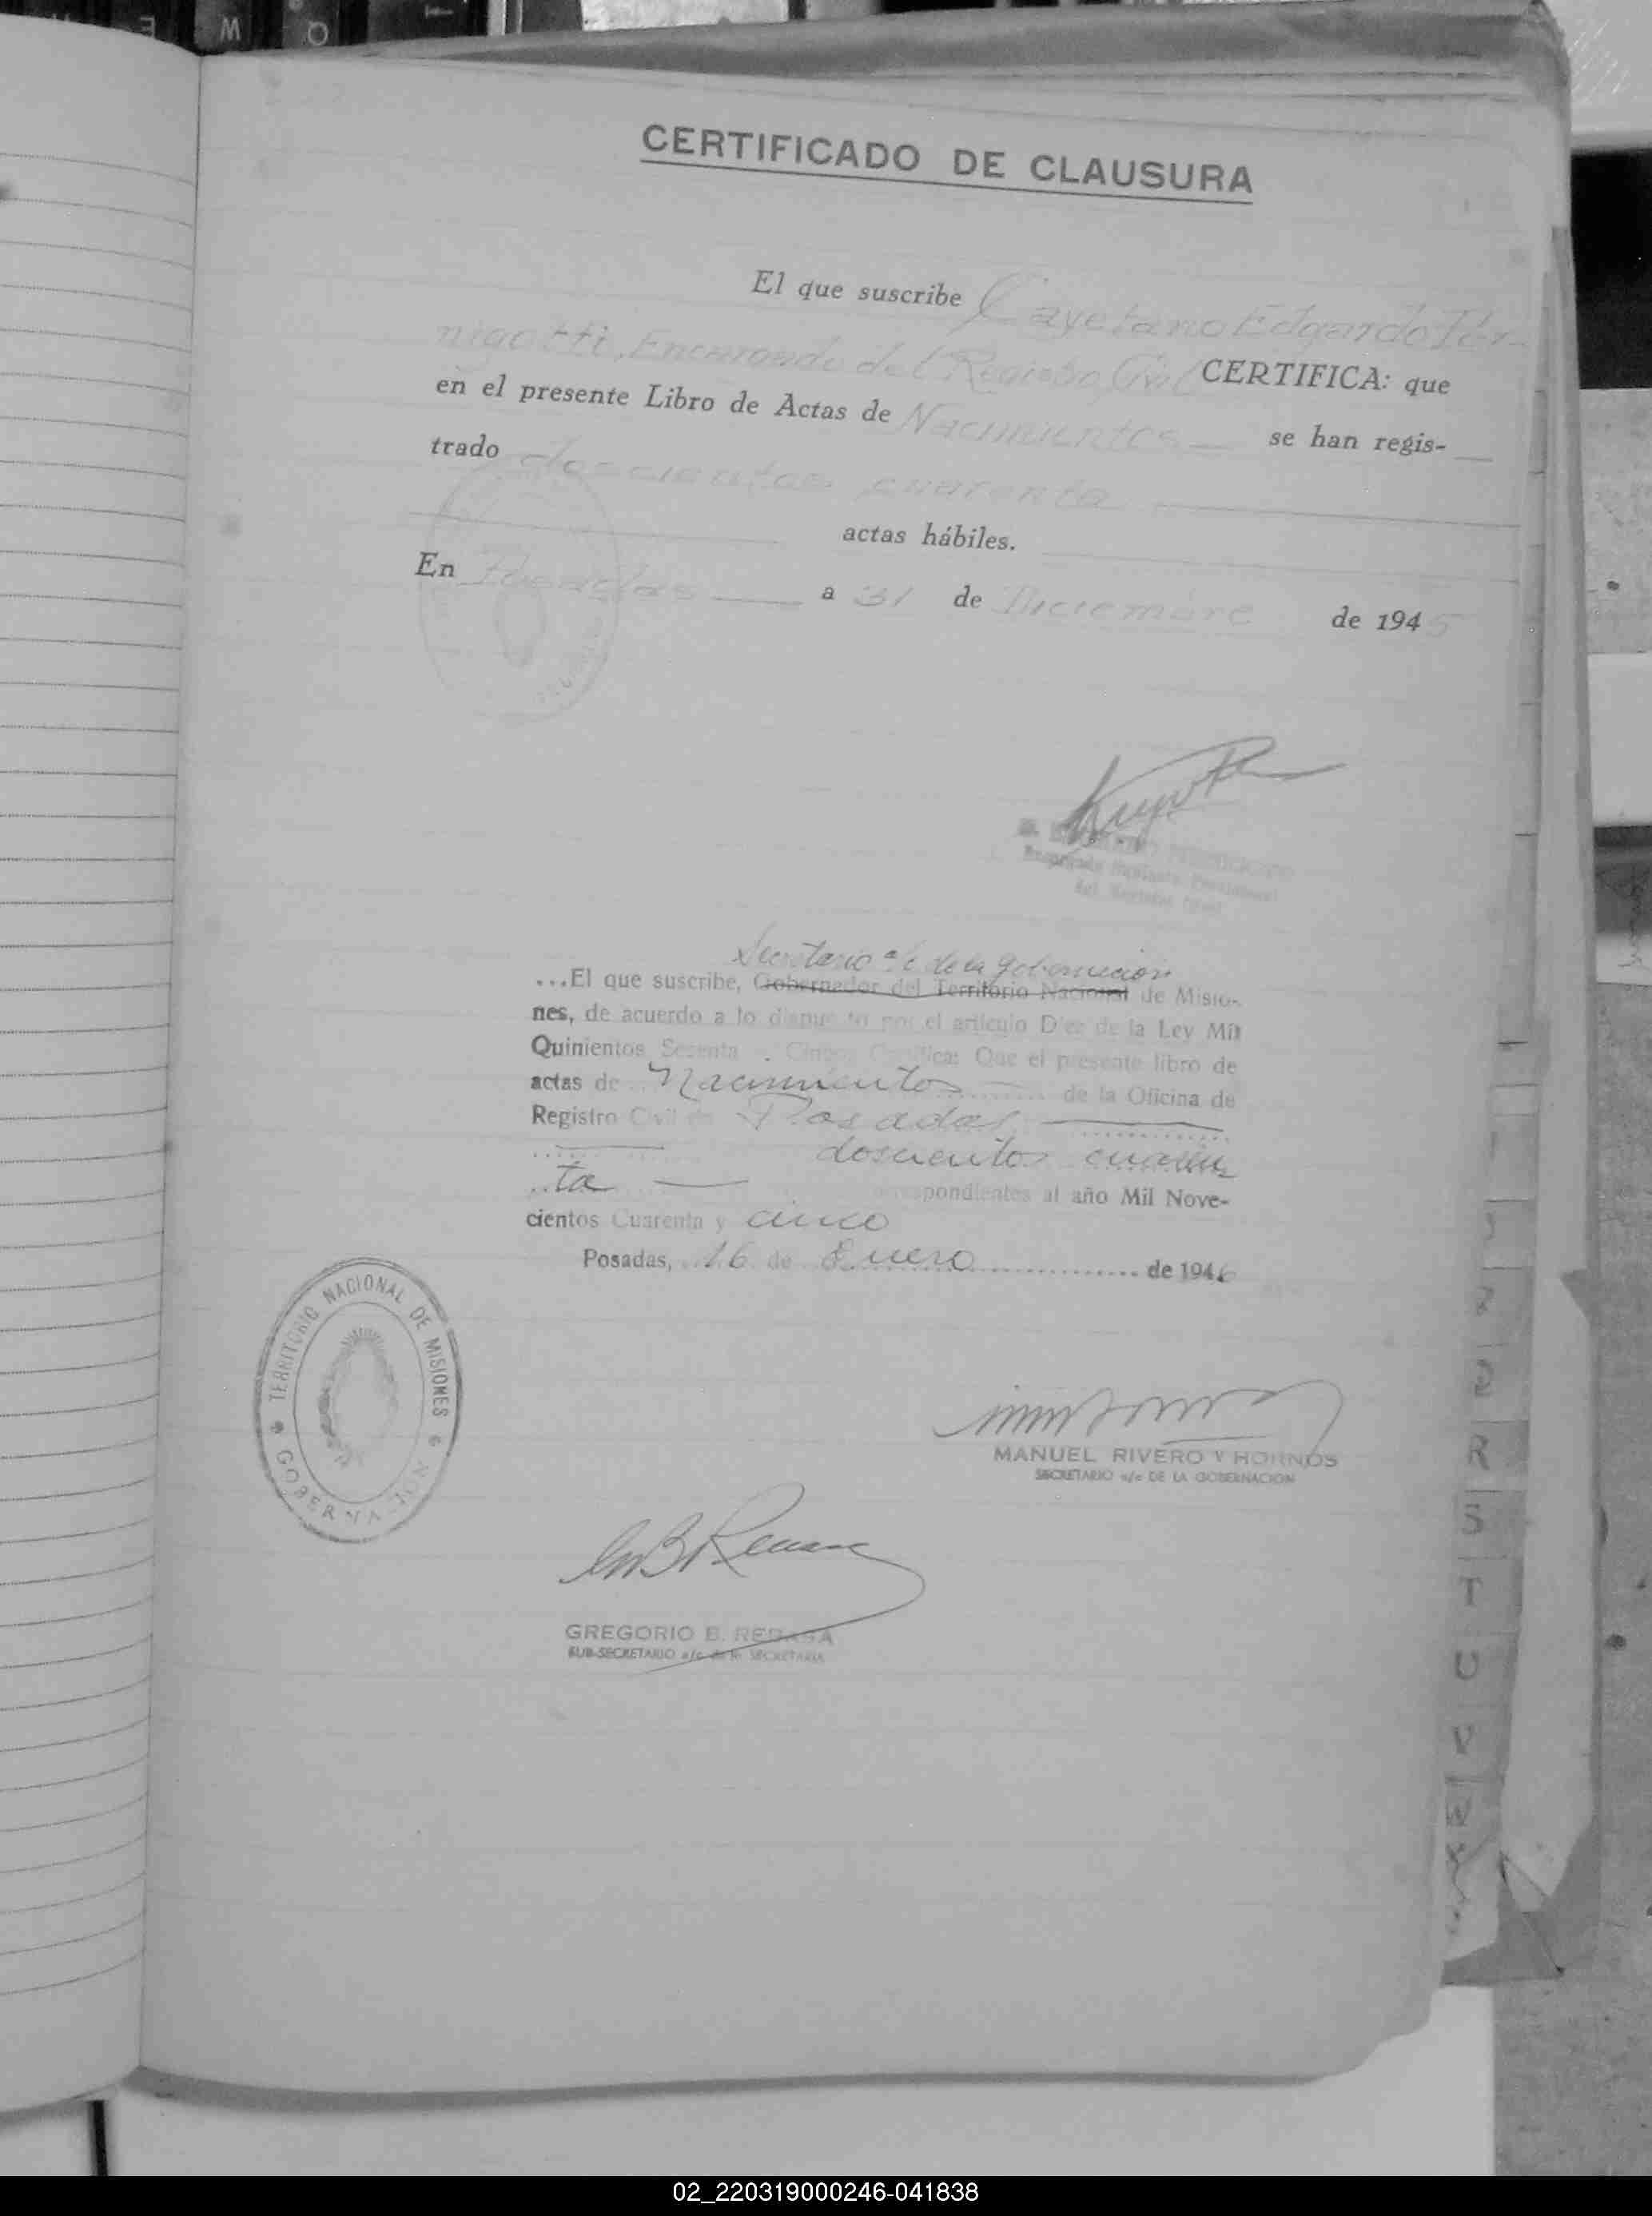 CERTIFICADO DE CLAUSURA
El que suscribe Cayetano Edgardo Per-
nigotti, Encargado del Registro Civil CERTIFICA: que
en el presente Libro de Actas de Nacimientos se han regis-
trado doscientas cuarenta
actas hábiles.
En Posadas a 31 de Diciembre de 1945
del Registro Civil
Secretario a/c de la gobernación
...El que suscribe, Gobernador del Territorio Nacional de Misio-
nes, de acuerdo a lo dispuesto por el artículo Diez de la Ley Mil
Quinientos Sesenta y Cinco Certifica: Que el presente libro de
actas de Nacimientos de la Oficina de
Registro Civil de Posadas
doscientos cuaren
ta correspondientes al año Mil Nove-
cientos Cuarenta y cinco
Posadas, 16 de Enero de 1946
TERRITORIO NACIONAL DE MISIONES
GOBERNACION
MANUEL RIVERO Y HORNOS
SECRETARIO a/c DE LA GOBERNACION
GREGORIO B. REBASA
SUB-SECRETARIO a/c de la SECRETARIA
R
S
T
U
V
02_220319000246-041838